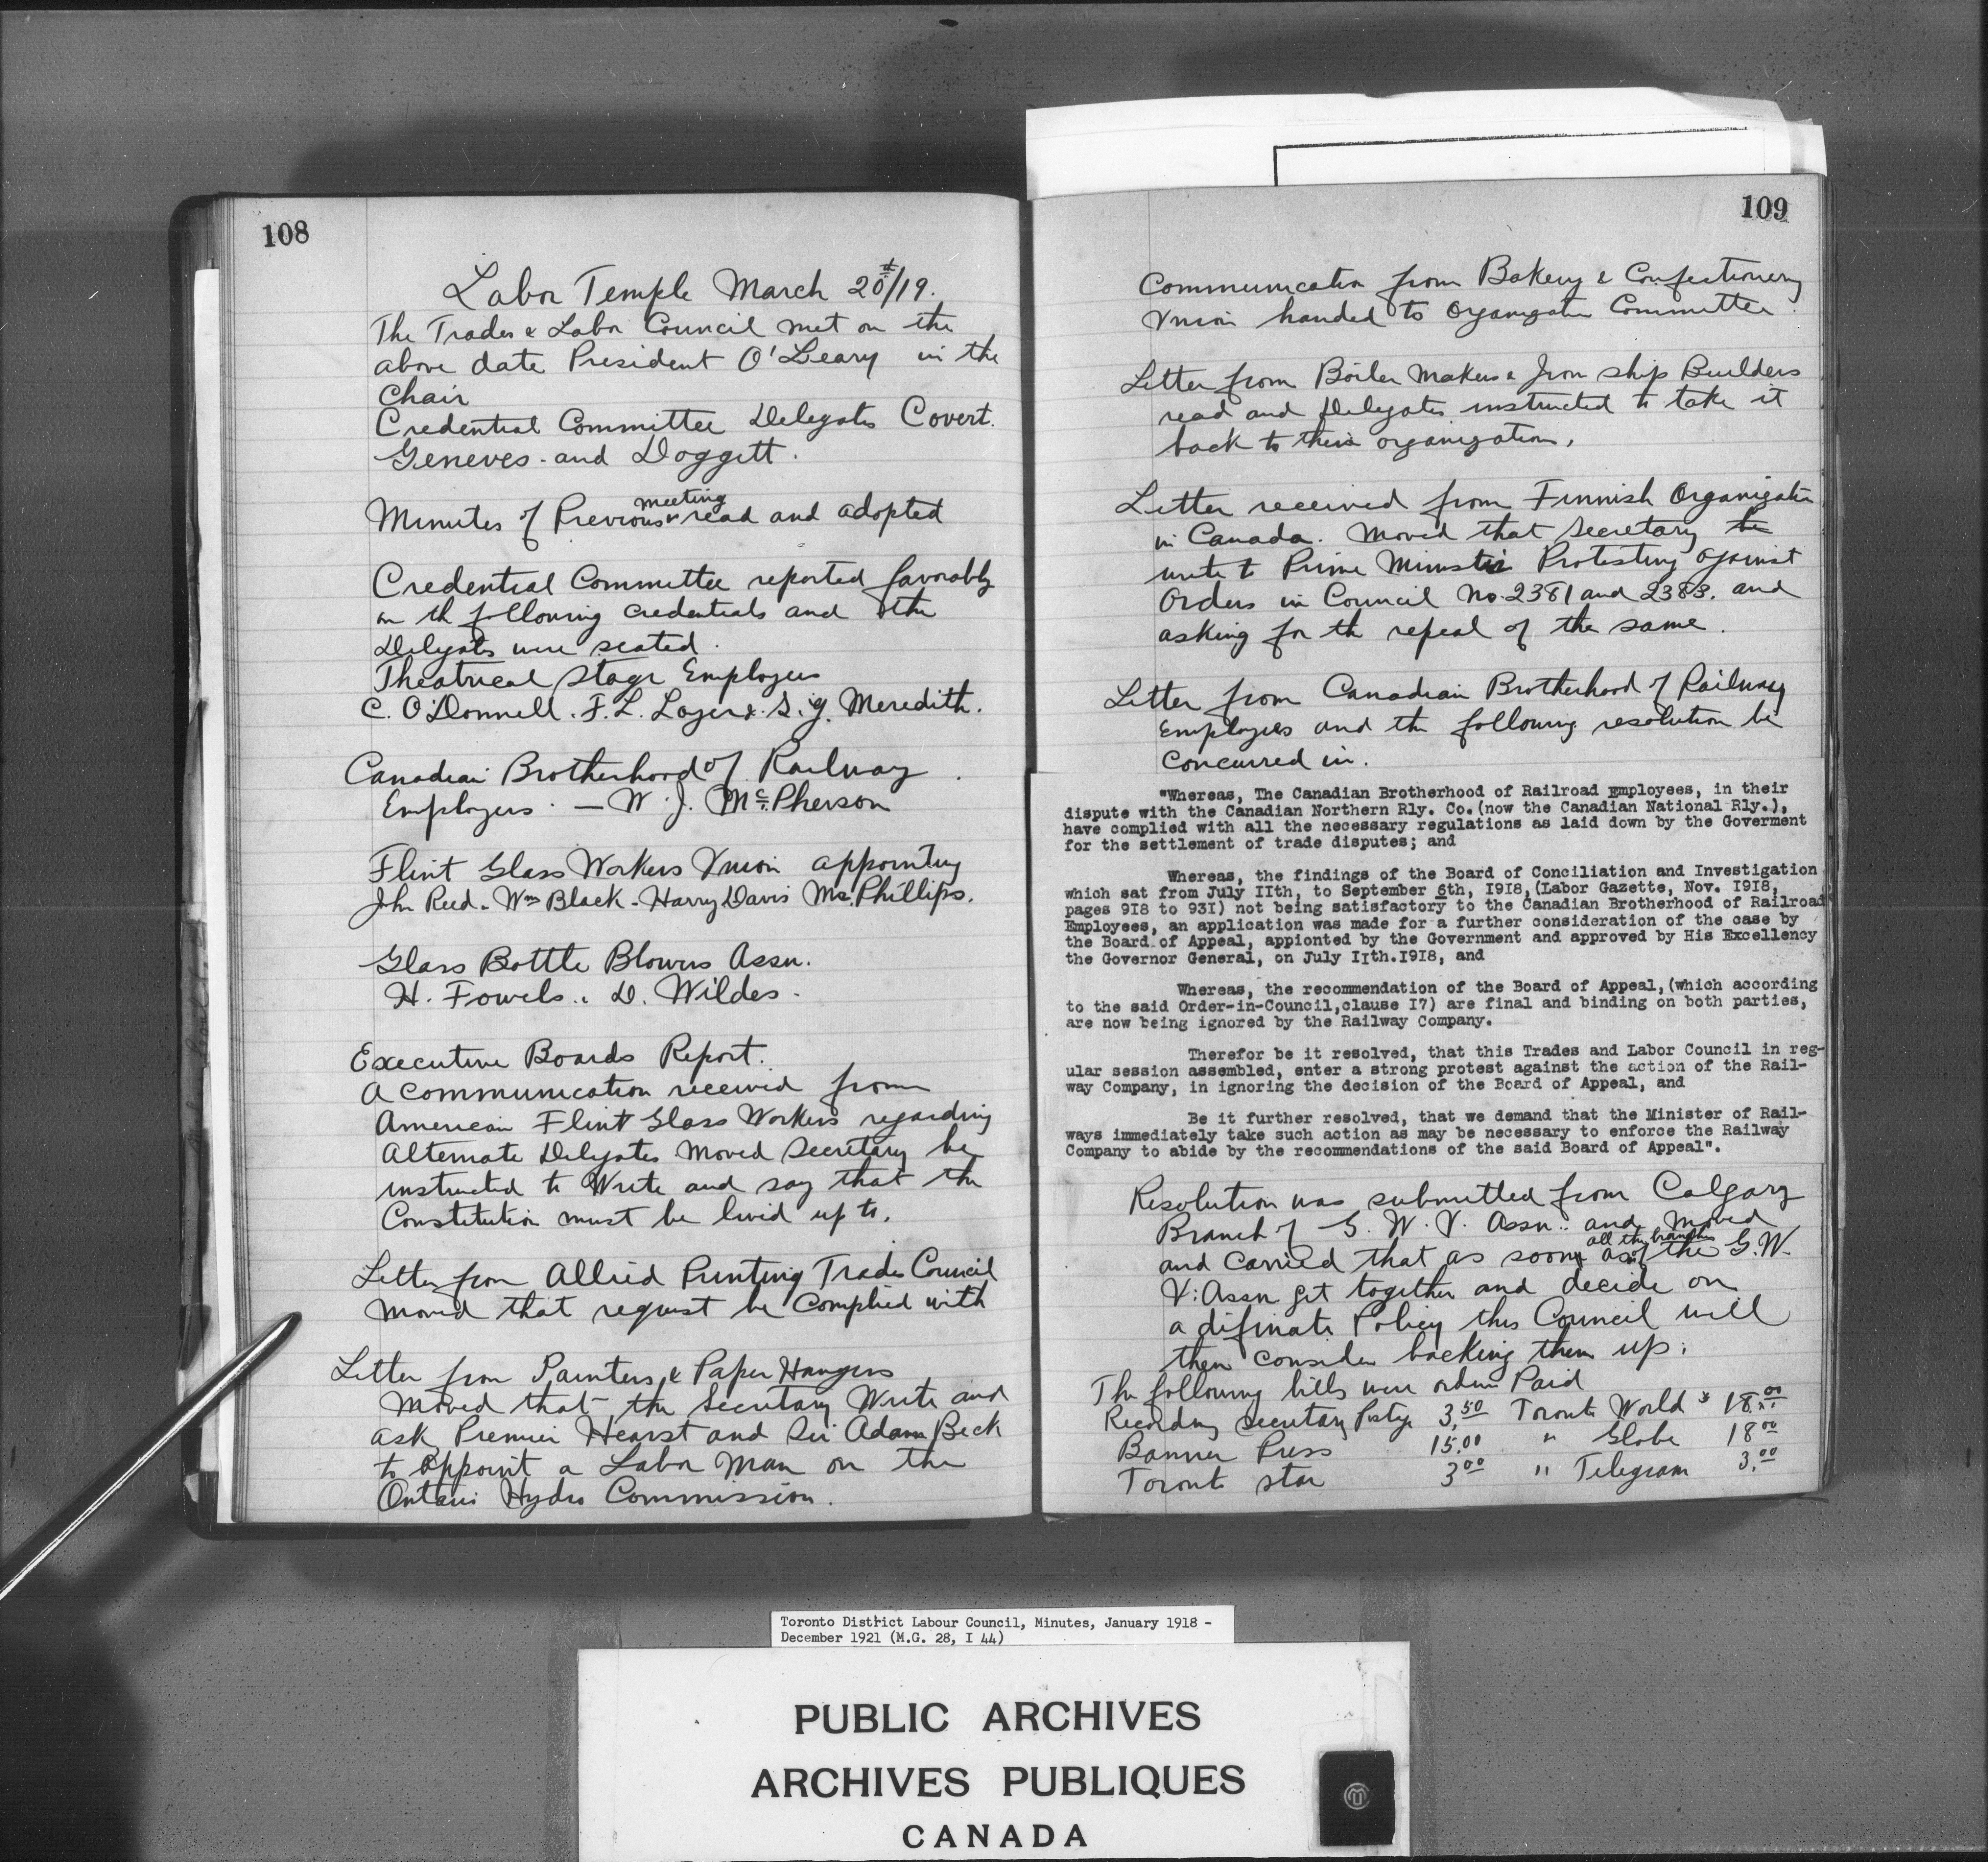 108
Labor Temple March 20th/19.
The Trades & Labor Council met on the
above date President O'Leary in the
Chair
Credential Committee Delegates Covert.
Geneves and Doggett.
Minutes of Previous meeting read and adopted
Credential Committee reported favorably
on th following credentials and the
Delegates were seated.
Theatrical Stage Employees
C. O'Donnell. F. L. & S. g. Meredith.
Canadian Brotherhood of Railway
Employees. — W. J. McPherson
Flint Glass Workers Union appointing
Jhn Reed. Wm Black - Harry Davis Mc.Phillips.
Glass Bottle Blowers Assn.
H. Fowels. D. Wildes.
Executive Boards Report.
A Communication received from
American Flint Glass Workers regarding
Alternate Delegates Moved Secretary be
instructed to Write and say that the
Constitution must be livid up to.
Letter from Allied Printing Trades Council
Moved that request be Complied with
Letter from Painters & Paper Hangers
Moved that the Secretary Write and
ask Premier Hearst and Sir Adam Beck
to appoint a Labor Man on the
Ontario Hydro Commission.
109
Communication from Bakery & Confectionery
Union handed to Organization Committee.
Letter from Boiler Makers & Iron ship Builders
read and Delegates instructed to take it
back to their organization.
Letter received from Finnish Organization
in Canada. Moved that Secretary be
write to Prime Minister Protesting against
Orders in Council No. 2381 and 2383. and
asking for th repeal of the same.
Letter from Canadian Brotherhood of Railway
Employees and the following resolution be
Concurred in.
"Whereas, The Canadian Brotherhood of Railroad Employees, in their
dispute with the Canadian Northern Rly. Co.(now the Canadian National Rly.),
have complied with all the necessary regulations as laid down by the Goverment
for the settlement of trade disputes; and
Whereas, the findings of the Board of Conciliation and Investigation
which sat from July IIth, to September 6th, I9I8,(Labor Gazette, Nov. I9I8,
pages 9I8 to 93I) not being satisfactory to the Canadian Brotherhood of Railroad
Employees, an application was made for a further consideration of the case by
the Board of Appeal, appionted by the Government and approved by His Excellency
the Governor General, on July IIth.I9I8, and
Whereas, the recommendation of the Board of Appeal,(which according
to the said Order-in-Council,clause I7) are final and binding on both parties,
are now being ignored by the Railway Company.
Therefor be it resolved, that this Trades and Labor Council in reg-
ular session assembled, enter a strong protest against the action of the Rail-
way Company, in ignoring the decision of the Board of Appeal, and
Be it further resolved, that we demand that the Minister of Rail-
ways immediately take such action as may be necessary to enforce the Railway
Company to abide by the recommendations of the said Board of Appeal".
Resolution was submitted from Calgary
Branch of G. W. V. Assn. and moved
and Carried that as soon as all the branches of the G.W.
V. Assn get together and decide on
a difinate Policy this Council will
then consider backing them up.
The following bills were orderd Paid
Recording Secretary Postge 3.50 Toronto World $ 18.00
Banner Press 15.00 " Globe 18 00
Toronto star 3 00 " Telegram 3.00
Toronto District Labour Council, Minutes, January 1918 -
December 1921 (M.G. 28, I 44)
PUBLIC ARCHIVES
ARCHIVES PUBLIQUES
CANADA